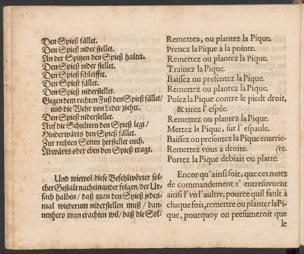 Den Spieß fället.
Den Spieß niderstellet.
An der Spitzen den Spieß haltet.
Den Spieß nider stellet.
Den Spieß schleifft.
Den Spieß fället.
Den Spieß niderstellet.
Gegen dem rechten Fuß den Spieß fället/
und die Wehr von Leder ziehet.
Den Spieß niderstellet.
Auf die Schultern den Spieß legt/
Hinderwärts den Spieß fället.
Zur rechten Seiten herstellet euch.
Abwärts oder eben den Spieß tragt.
Und wiewol diese Befehlwörter sol-
cher Gestalt nacheinander folgen/ der Ur-
sach halben/ daß man den Spieß jedes-
mal wiederum niderstellen muß/ dan-
nenhero man erachten wil/ daß die Sol-
Remettez, ou plantez la Pique.
Prenez la Pique à la pointe.
Remettez ou plantez la Pique.
Trainez la Pique.
Baissez ou presentez la Pique.
Remettez ou plantez la Pique.
Posez la Pique contre le piedt droit,
& tirez l'espée.
Remettez ou plantez la Pique.
Mettez la Pique, sur l'espaule.
Baissez ou presentez la Pique en arrie-
Remettez vous à droite. (re.
Portez la Pique debiais ou platte.
Encor qu'ainsi soit, que ces mots
de commandement s'entresuivent
ainsi l'un l'autre, pource qu'il fault à
chaque fois, remettre ou planter la Pi-
que, pourquoy on presumeroit que
le